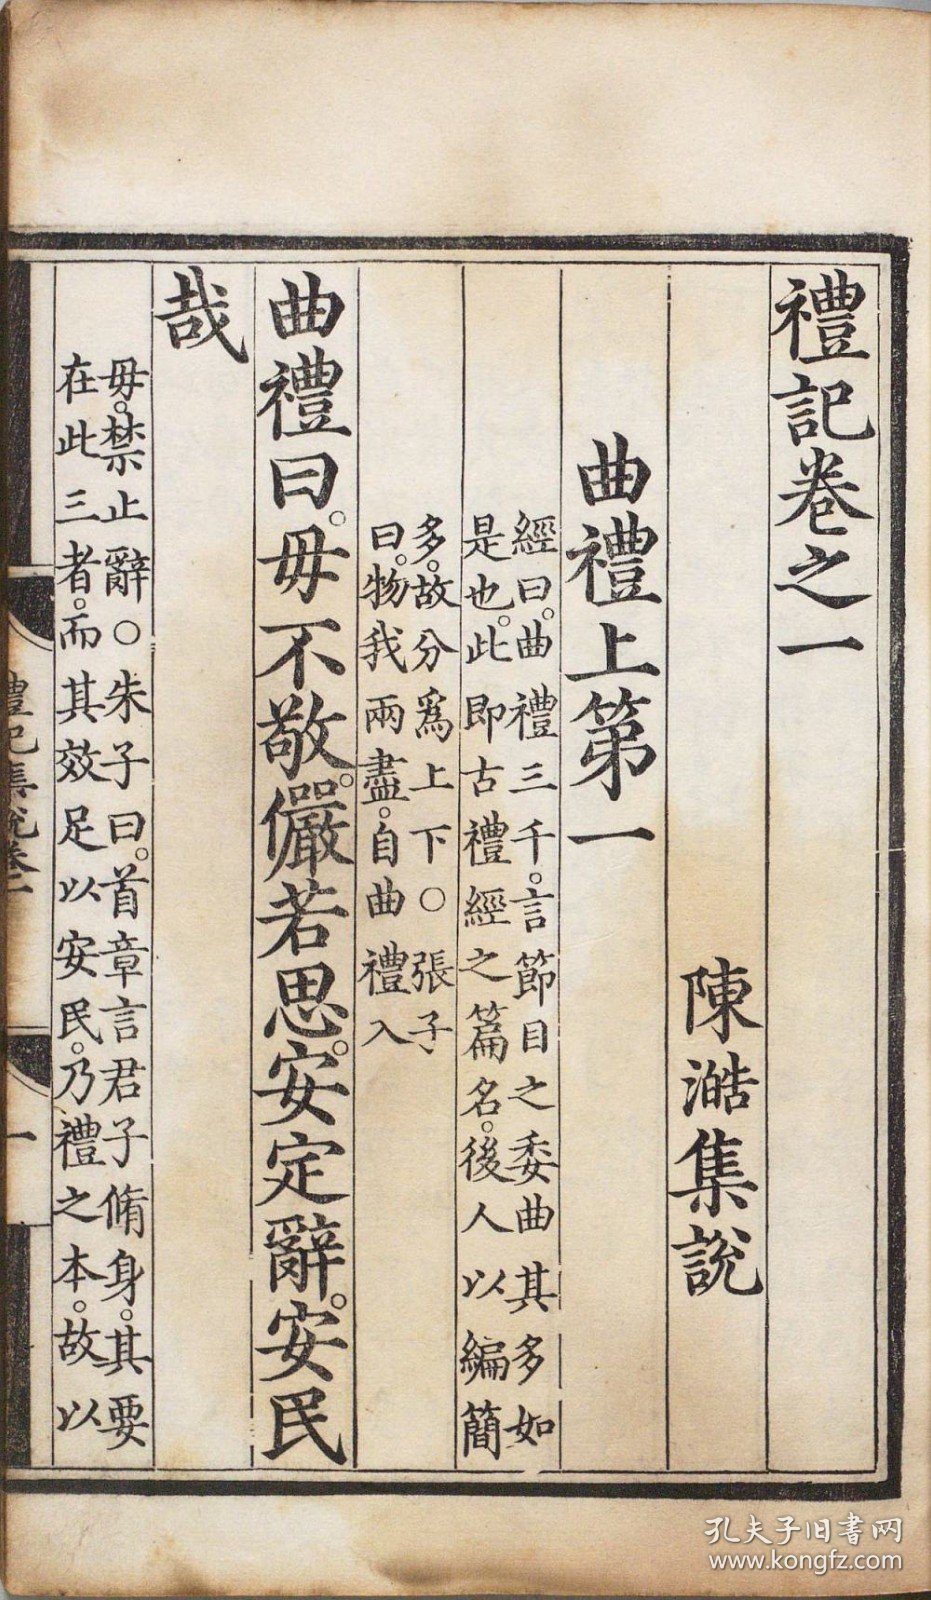 禮記卷之一
陳澔集說
曲禮上第一
經曰。曲禮三千。言節目之委曲其多如
是也。此即古禮經之篇名。後人以編簡
多。故分爲上下○張子
曰。物我兩盡。自曲禮入
曲禮曰。毋不敬。儼若思。安定辭。安民
哉
毋。禁止辭○朱子曰。首章言君子脩身。其要
在此三者。而其效足以安民。乃禮之本。故以
禮記集說卷一
一
孔夫子旧书网
www.kongfz.com